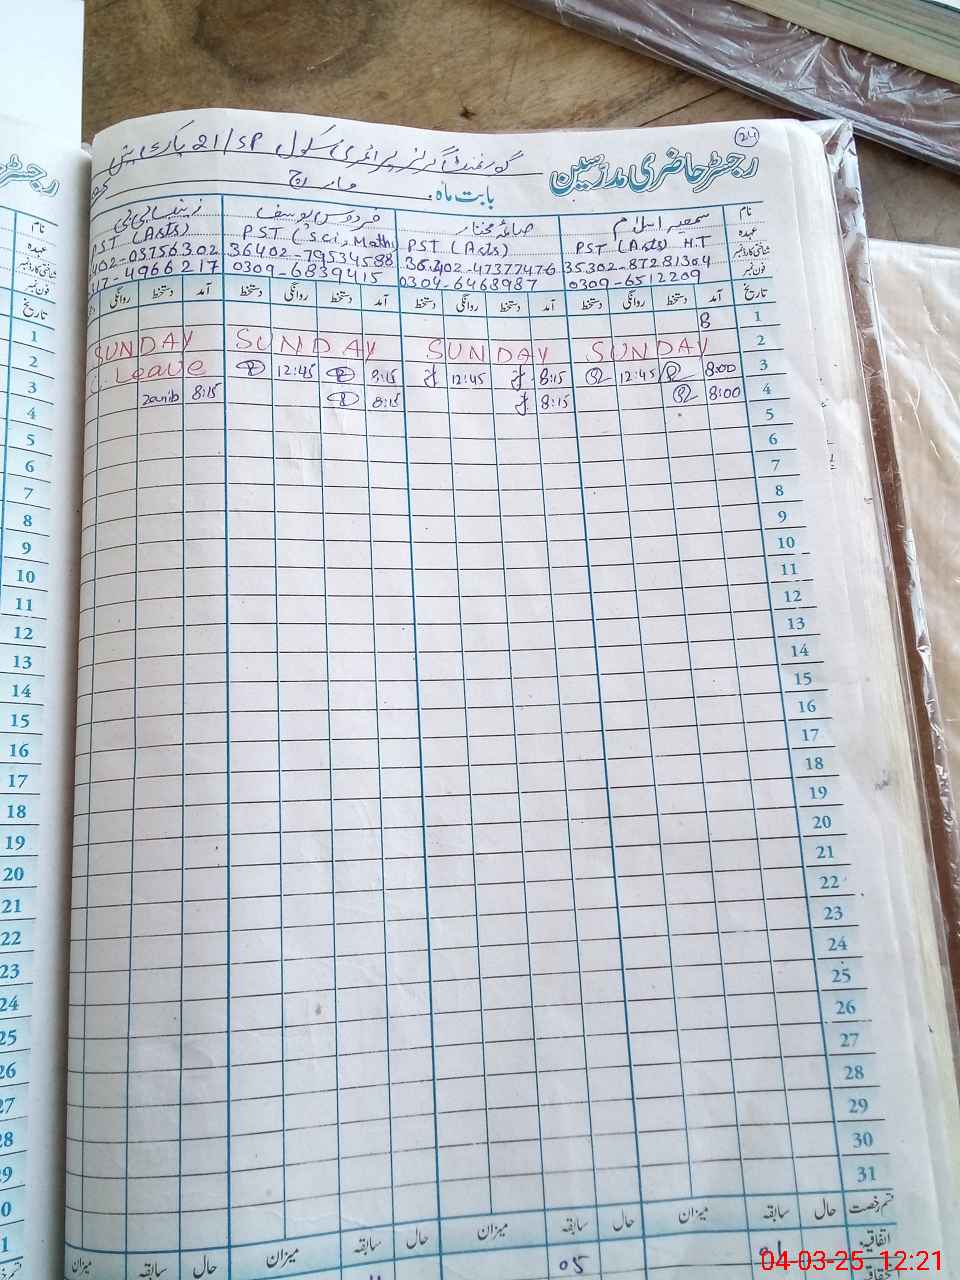 24
رجسٹر حاضری مدرسین
گورنمنٹ گرلز پرائمری سکول 21/SP
بابت ماہ مارچ
نام سمعیہ اسلام صائمہ مختار فردوس یوسف زینب بی بی
عہدہ PST (Arts) H.T PST (Arts) PST (Sci, Math) PST (Arts)
شناختی کارڈ نمبر 35302-8728130.4 36402-47377476 36402-79534588 402-05756302
فون نمبر 0309-6512209 0304-6468987 0309-6839415 4966217
تاریخ آمد دستخط روانگی دستخط آمد دستخط روانگی دستخط آمد دستخط روانگی دستخط آمد دستخط روانگی
1
2 SUNDAY SUNDAY SUNDAY SUNDAY
3 8:00 12:45 8:15 12:45 8:15 12:45 Leave
4 8:00 8:15 8:15 8:15 Zanib
5
6
7
8
9
10
11
12
13
14
15
16
17
18
19
20
21
22
23
24
25
26
27
28
29
30
31
قسم رخصت حال سابقہ میزان حال سابقہ میزان حال سابقہ میزان حال سابقہ میزان
اتفاقیہ 05
04-03-25 12:21